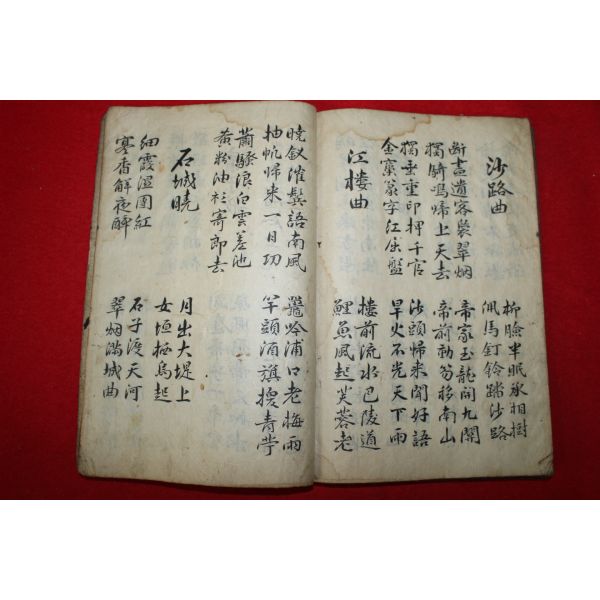 沙路曲
柳臉半眠丞相樹
佩馬釘鈴踏沙路
斷畫遺客裊翠烟
獨騎鳴啼上天去
帝家玉龍開九關
帝前動笏移南山
獨垂重印押千官
金窠篆字紅屈盤
沙頭歸來聞好語
旱火不光天下雨
江楼曲
楼前流水巴陵道
鯉魚風起芙蓉老
曉釵催鬂語南風
抽帆歸來一日功
鼉吟浦口老梅雨
竿頭酒旗換青苧
蕭騷浪白雲差池
黃粉油衫寄郎去
石城曉
月出大堤上
女垣栖烏起
細霞湿團紅
寒香解夜酔
石子渡天河
翠烟滿城曲